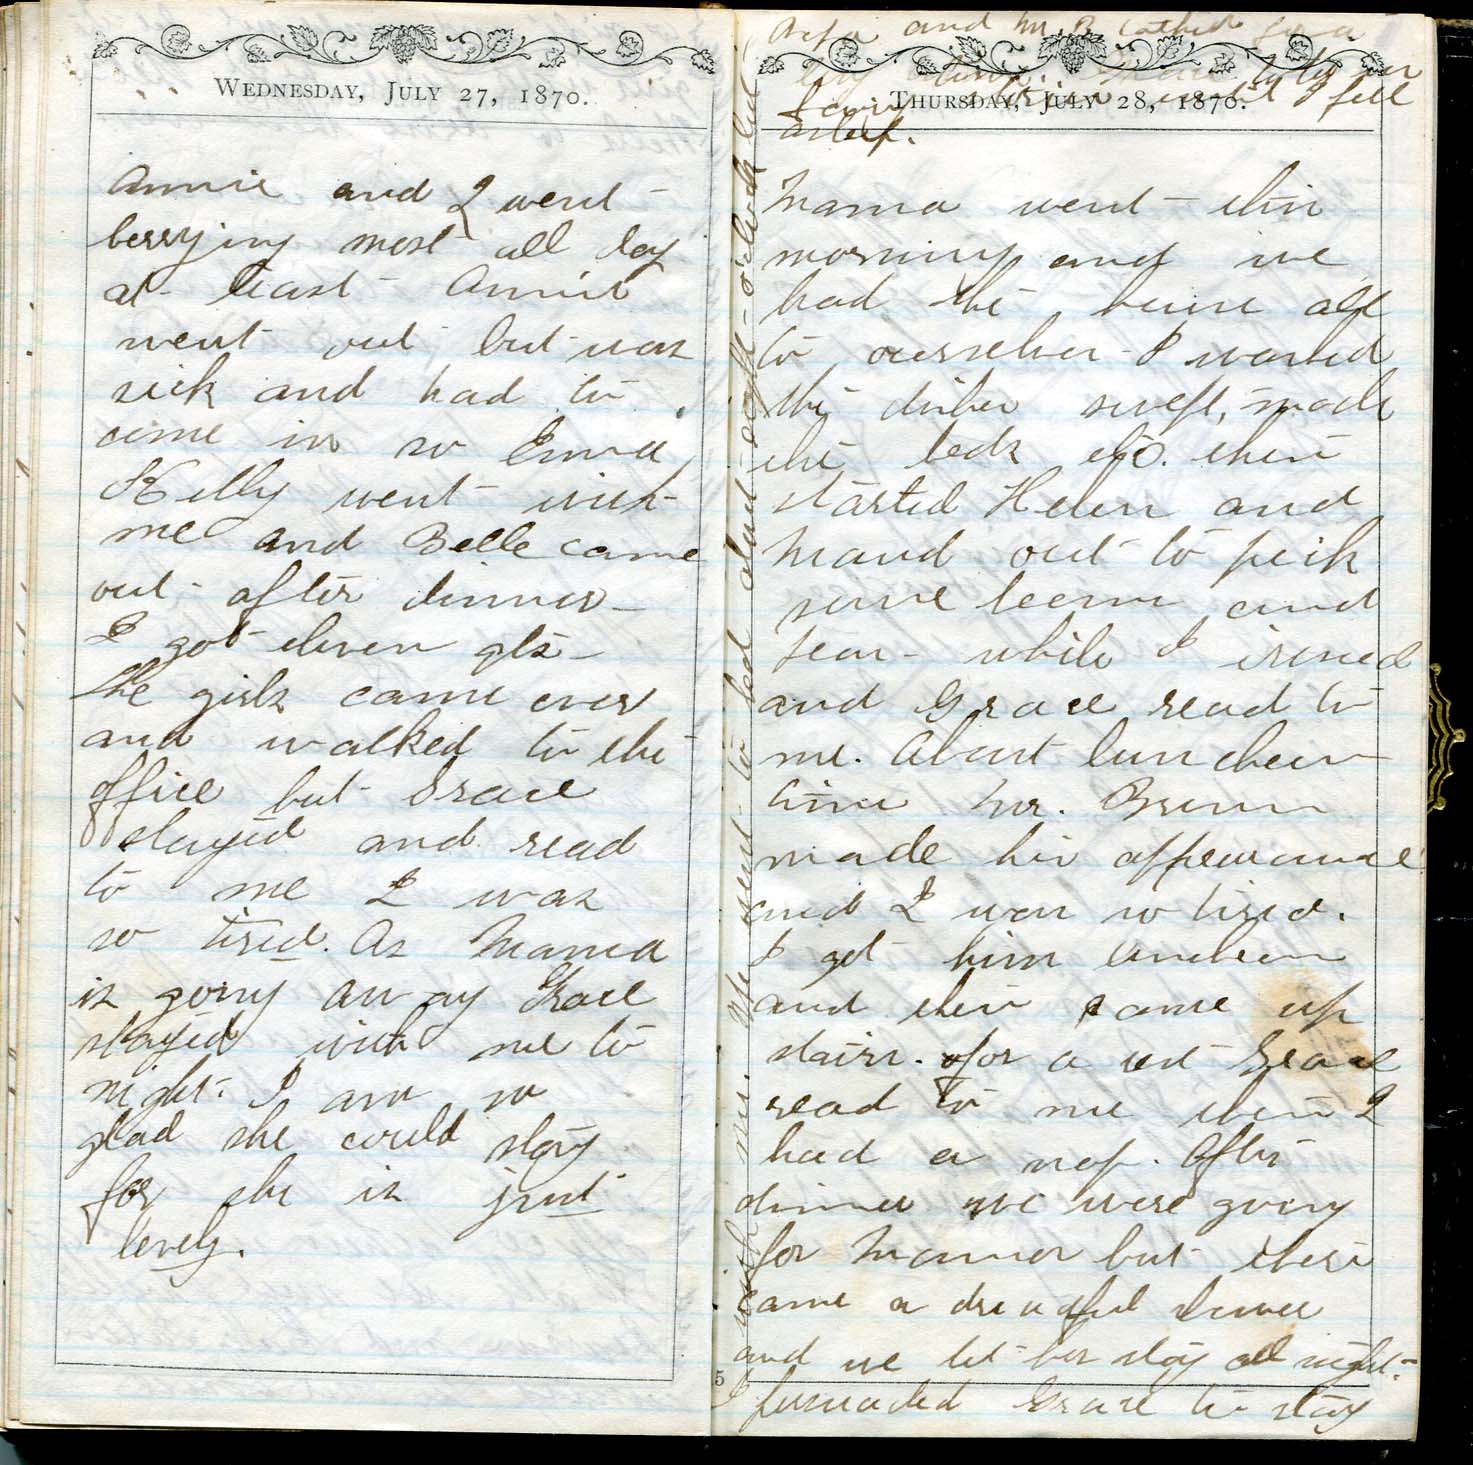 WEDNESDAY, JULY 27, 1870.
Annie and I went
berrying most all day
at least Annie
went out but was
sick and had to
come in so Emma
Kelly went with
me and Belle came
out after dinner
I got eleven qts
The girls came over
and walked to the
office but Grace
stayed and read
to me I was
so tired. As Mama
is going away Grace
stayed with me to
night. I am so
glad she could stay
for she is just
lovely.
Papa and Mr. B talked for a
long time. Grace
told me stories until I fell
asleep.
THURSDAY, JULY 28, 1870.
Mama went this
morning and we
had the house all
to ourselves I washed
the dishes swept, made
the beds &c. then
started Helen and
Maud out to pick
some beans and
peas while I ironed
and Grace read to
me. About luncheon
time Mr. Brown
made his appearance
and I was so tired.
I got him luncheon
and then came up
stairs for a rest Grace
read to me then I
had a nap. After
dinner we were going
for Mama but there
came a dreadful shower
and we let her stay all night.
I persuaded Grace to stay
with me. We went to bed about eight o'clock but